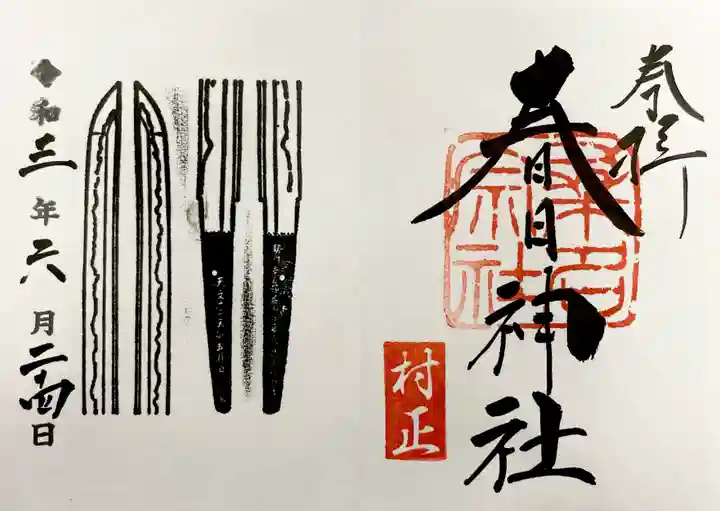 奉拝
春日神社
桑名
宗社
村正
令和三年六月二十四日